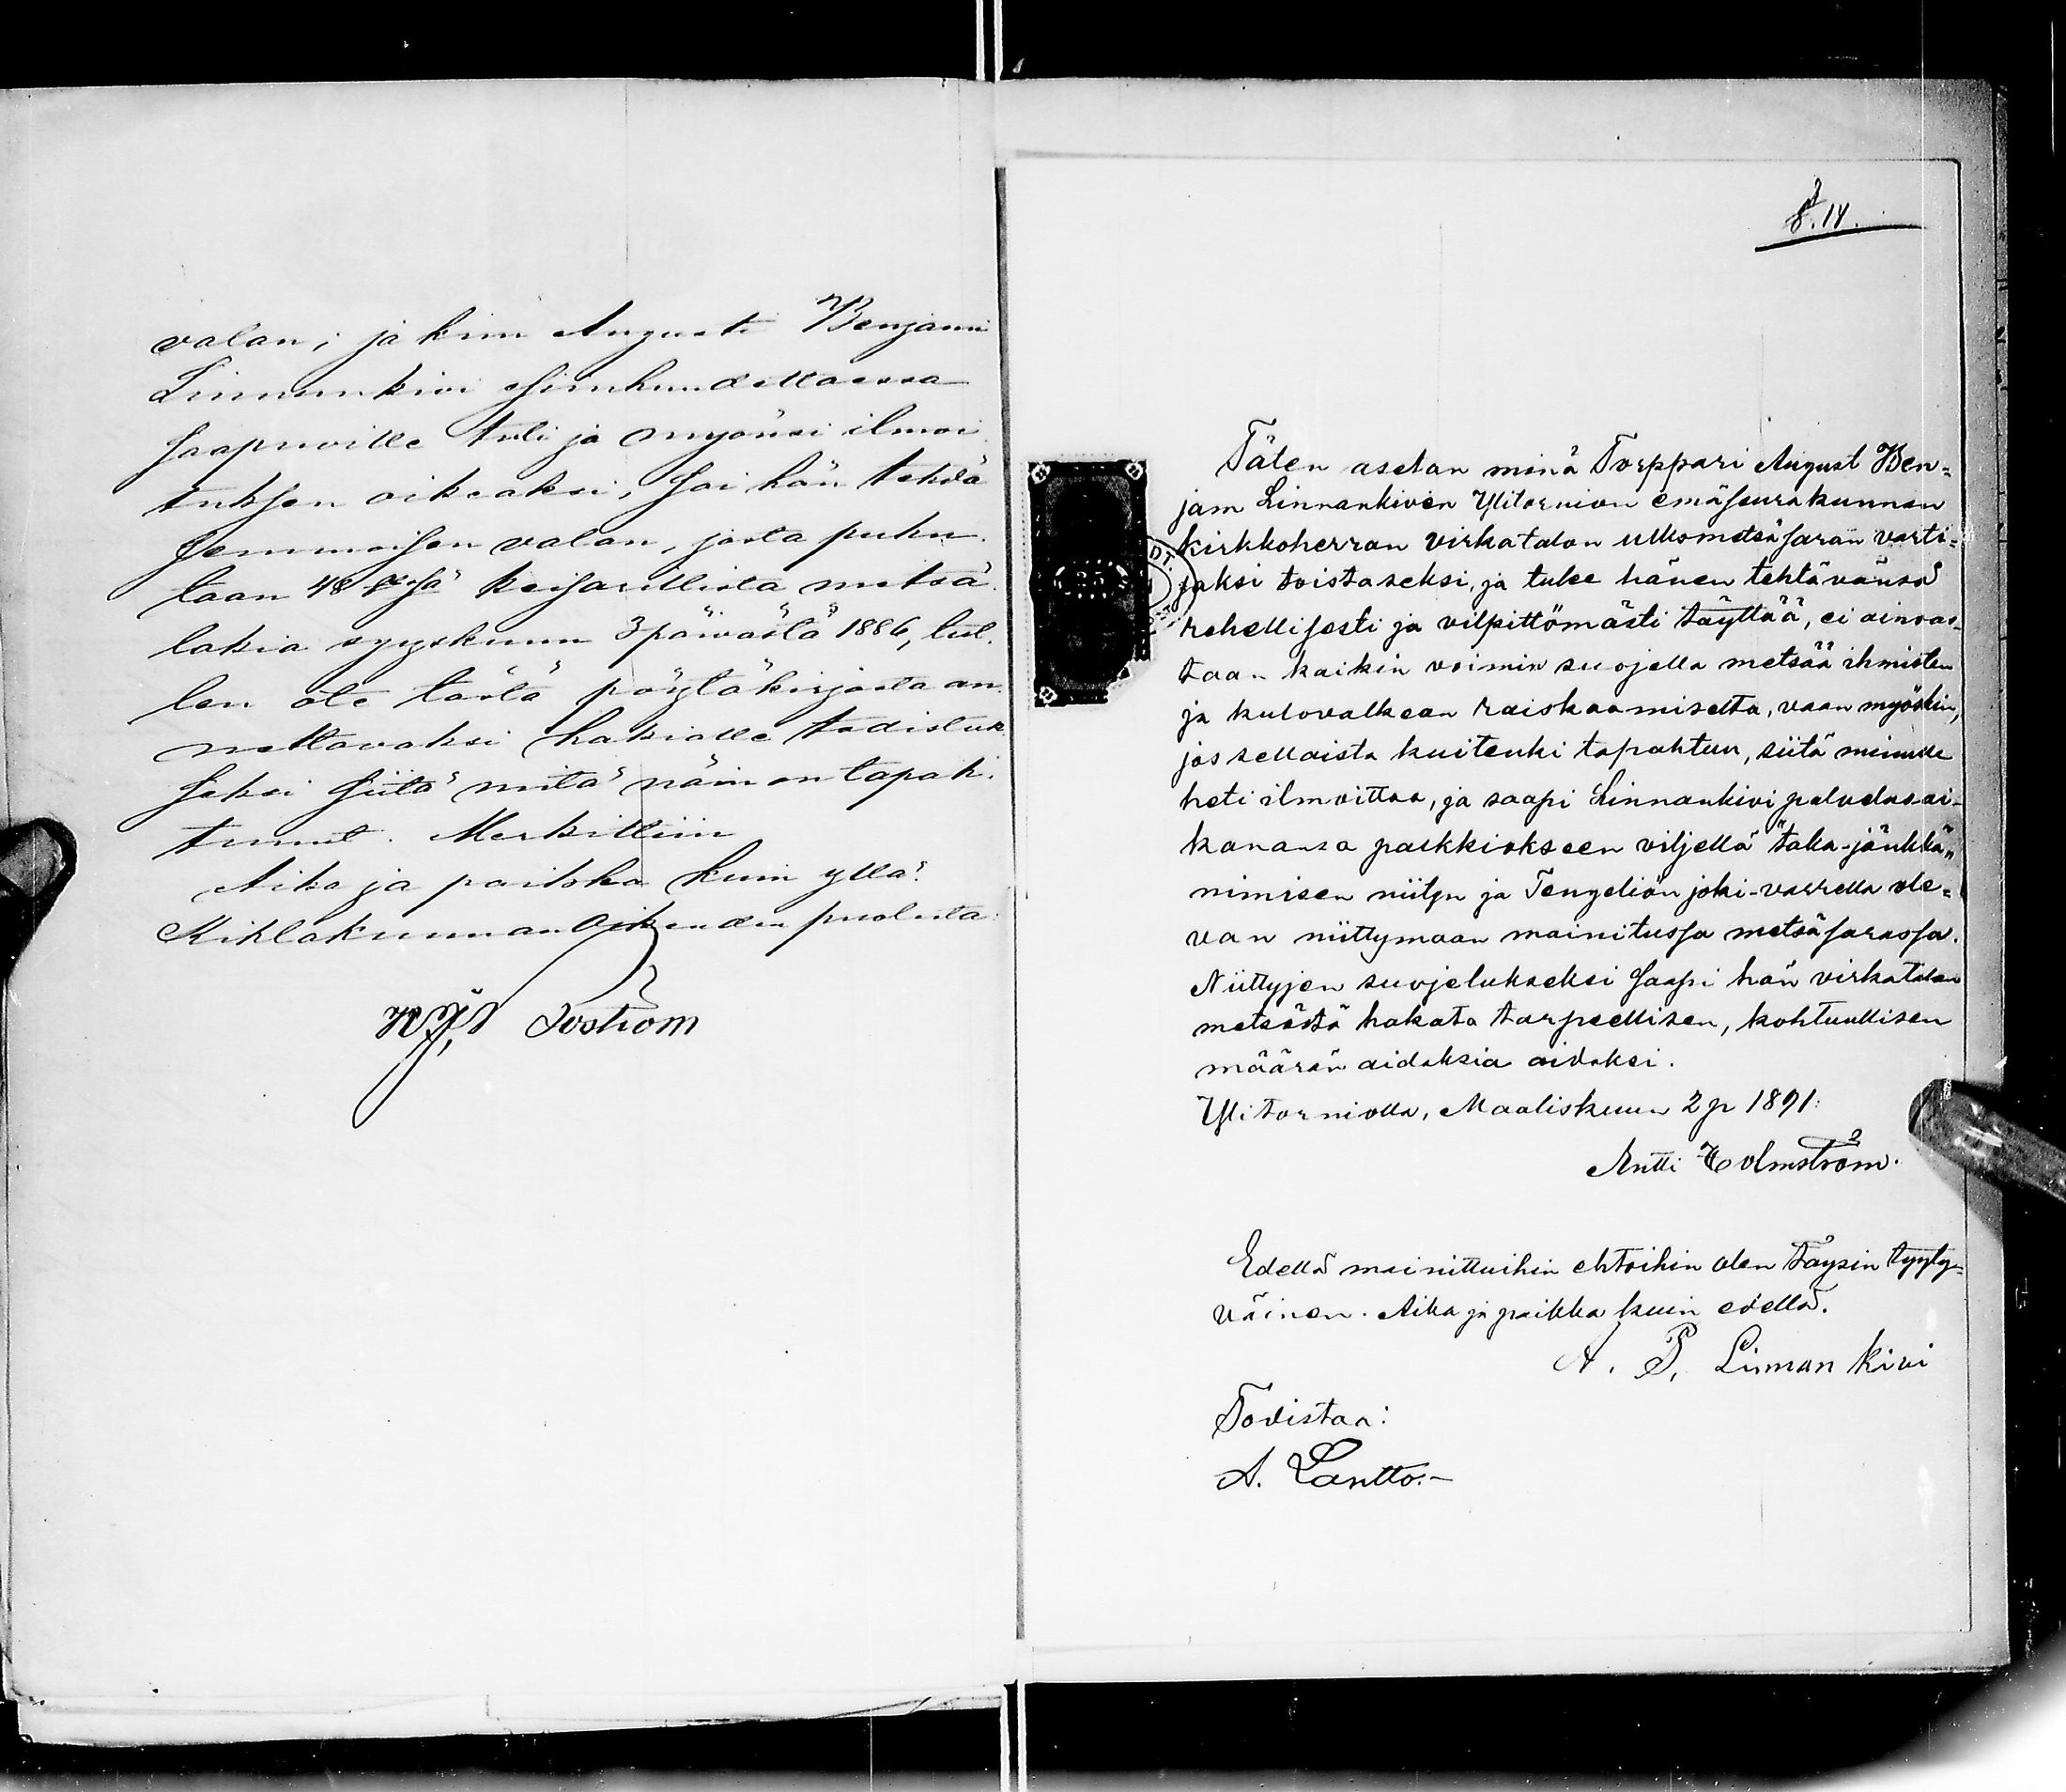 valan; ja kun Augusti Benjami
Linnankivi sisinhuudettaessa
saapuville tuli ja myönsi ilmoi
tuksen oikeaksi, sai hän tehdä
semmoisen valan, josta puhu-
taan 48 §:ssä keisarillista metsä
lakia syyskuun 3 päivästä 1886, tul-
len ote tästä pöytäkirjasta an-
nettavaksi hakialle todistuk
seksi siitä mitä näin on tapah-
tunut. Merkittiin
Aika ja paikka kuin yllä.
Kihlakunnanoikeuden puolesta:
§. 14.
Täten asetan minä Torppari August Ben=
jam Linnankiven Ylitornion emäseurakunnan
kirkkoherran virkatalon ulkometsäsaran varti=
jaksi toistaseksi, ja tulee hänen tehtävänsä
rehellisesti ja vilpittömästi täyttää, ei ainoas-
taan kaikin voimin suojella metsää ihmisten
ja kulovalkean raiskaamiselta, vaan myöskin,
jos sellaista kuitenki tapahtuu, siitä minulle
heti ilmoittaa, ja saapi Linnankivi palvelusai-
kanansa palkkiokseen viljellä "taka-jänkkä"
nimisen niityn ja Tengeliön joki-varrella ole=
van niittymaan mainitussa metsäsarassa.
Niittyjen suojelukseksi saapi hän virkatalon
metsästä hakata tarpeellisen, kohtuullisen
määrän aidaksia aidaksi.
Ylitorniolla, Maaliskuun 2 p 1891:
Antti Holmström.
Edellä mainittuihin ehtoihin olen täysin tyyty=
väinen. Aika ja paikka kuin edellä.
A. P. Linnan kivi
Todistaa:
A. Lantto.-